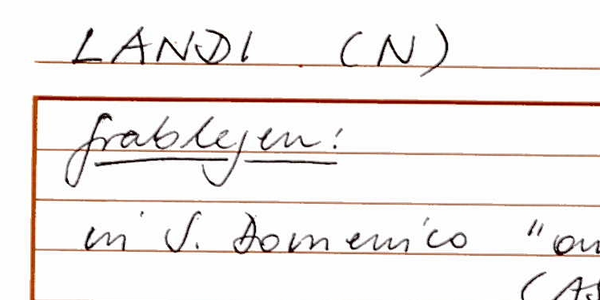 LANDI (N)
Grablegen:
in S. Domenico "on
(AS